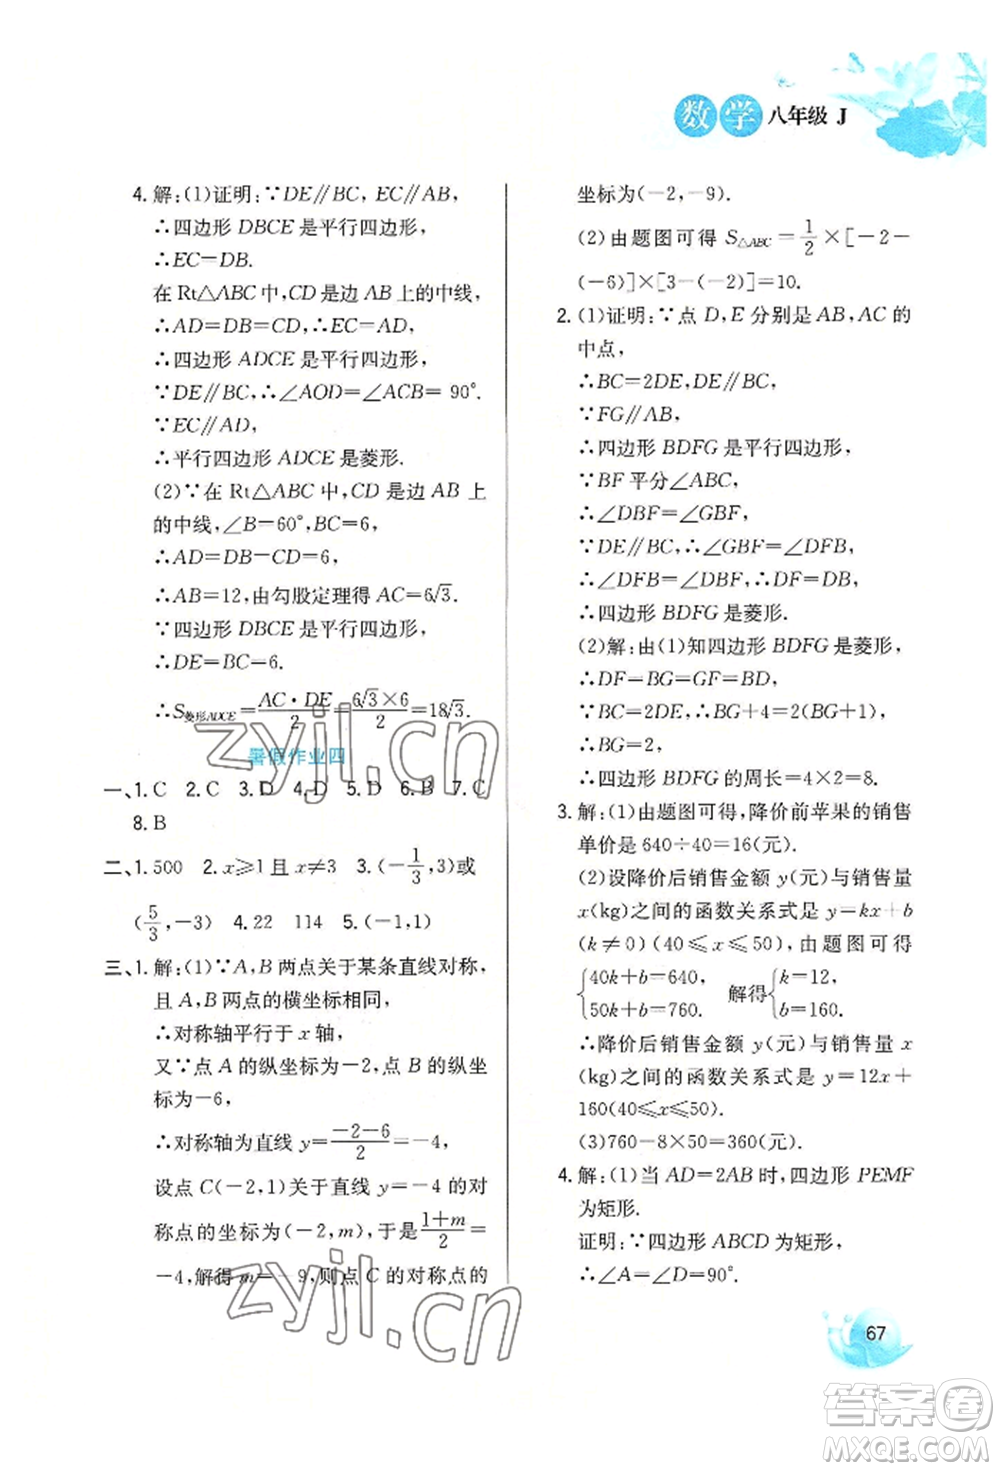 数学 八年级 J
4. 解:(1)证明:∵DE∥BC,EC∥AB,
∴四边形 DBCE 是平行四边形,
∴EC=DB.
在 Rt△ABC 中,CD 是边 AB 上的中线,
∴AD=DB=CD,∴EC=AD,
∴四边形 ADCE 是平行四边形,
∵DE∥BC,∴∠AOD=∠ACB=90°.
∵EC∥AD,
∴平行四边形 ADCE 是菱形.
(2)∵在 Rt△ABC 中,CD 是边 AB 上
的中线,∠B=60°,BC=6,
∴AD=DB=CD=6,
∴AB=12,由勾股定理得 AC=6√3.
∵四边形 DBCE 是平行四边形,
∴DE=BC=6.
∴S菱形ADCE=AC·DE/2=6√3×6/2=18√3.
暑假作业四
一、1. C 2. C 3. D 4. D 5. D 6. B 7. C
8. B
二、1. 500 2. x⩾1 且 x≠3 3. (-1/3,3)或
(5/3,-3) 4. 22 114 5. (-1,1)
三、1. 解:(1)∵A,B 两点关于某条直线对称,
且 A,B 两点的横坐标相同,
∴对称轴平行于 x 轴,
又∵点 A 的纵坐标为-2,点 B 的纵坐
标为-6,
∴对称轴为直线 y=-2-6/2=-4,
设点 C(-2,1)关于直线 y=-4 的对
称点的坐标为(-2,m),于是1+m/2=
-4,解得 m=-9,则点 C 的对称点的
坐标为(-2,-9).
(2)由题图可得 S△ABC=1/2×[-2-
(-6)]×[3-(-2)]=10.
2. (1)证明:∵点 D,E 分别是 AB,AC 的
中点,
∴BC=2DE,DE∥BC,
∵FG∥AB,
∴四边形 BDFG 是平行四边形,
∵BF 平分∠ABC,
∴∠DBF=∠GBF,
∵DE∥BC,∴∠GBF=∠DFB,
∴∠DFB=∠DBF,∴DF=DB,
∴四边形 BDFG 是菱形.
(2)解:由(1)知四边形 BDFG 是菱形,
∴DF=BG=GF=BD,
∵BC=2DE,∴BG+4=2(BG+1),
∴BG=2,
∴四边形 BDFG 的周长=4×2=8.
3. 解:(1)由题图可得,降价前苹果的销售
单价是 640÷40=16(元).
(2)设降价后销售金额 y(元)与销售量
x(kg)之间的函数关系式是 y=kx+b
(k≠0)(40⩽x⩽50),由题图可得
{40k+b=640, 50k+b=760. 解得 {k=12, b=160.
∴降价后销售金额 y(元)与销售量 x
(kg)之间的函数关系式是 y=12x+
160(40⩽x⩽50).
(3)760-8×50=360(元).
4. 解:(1)当 AD=2AB 时,四边形 PEMF
为矩形.
证明:∵四边形 ABCD 为矩形,
∴∠A=∠D=90°.
67
zyjl.cn
zyjl.cn
答案圈
MXQE.COM